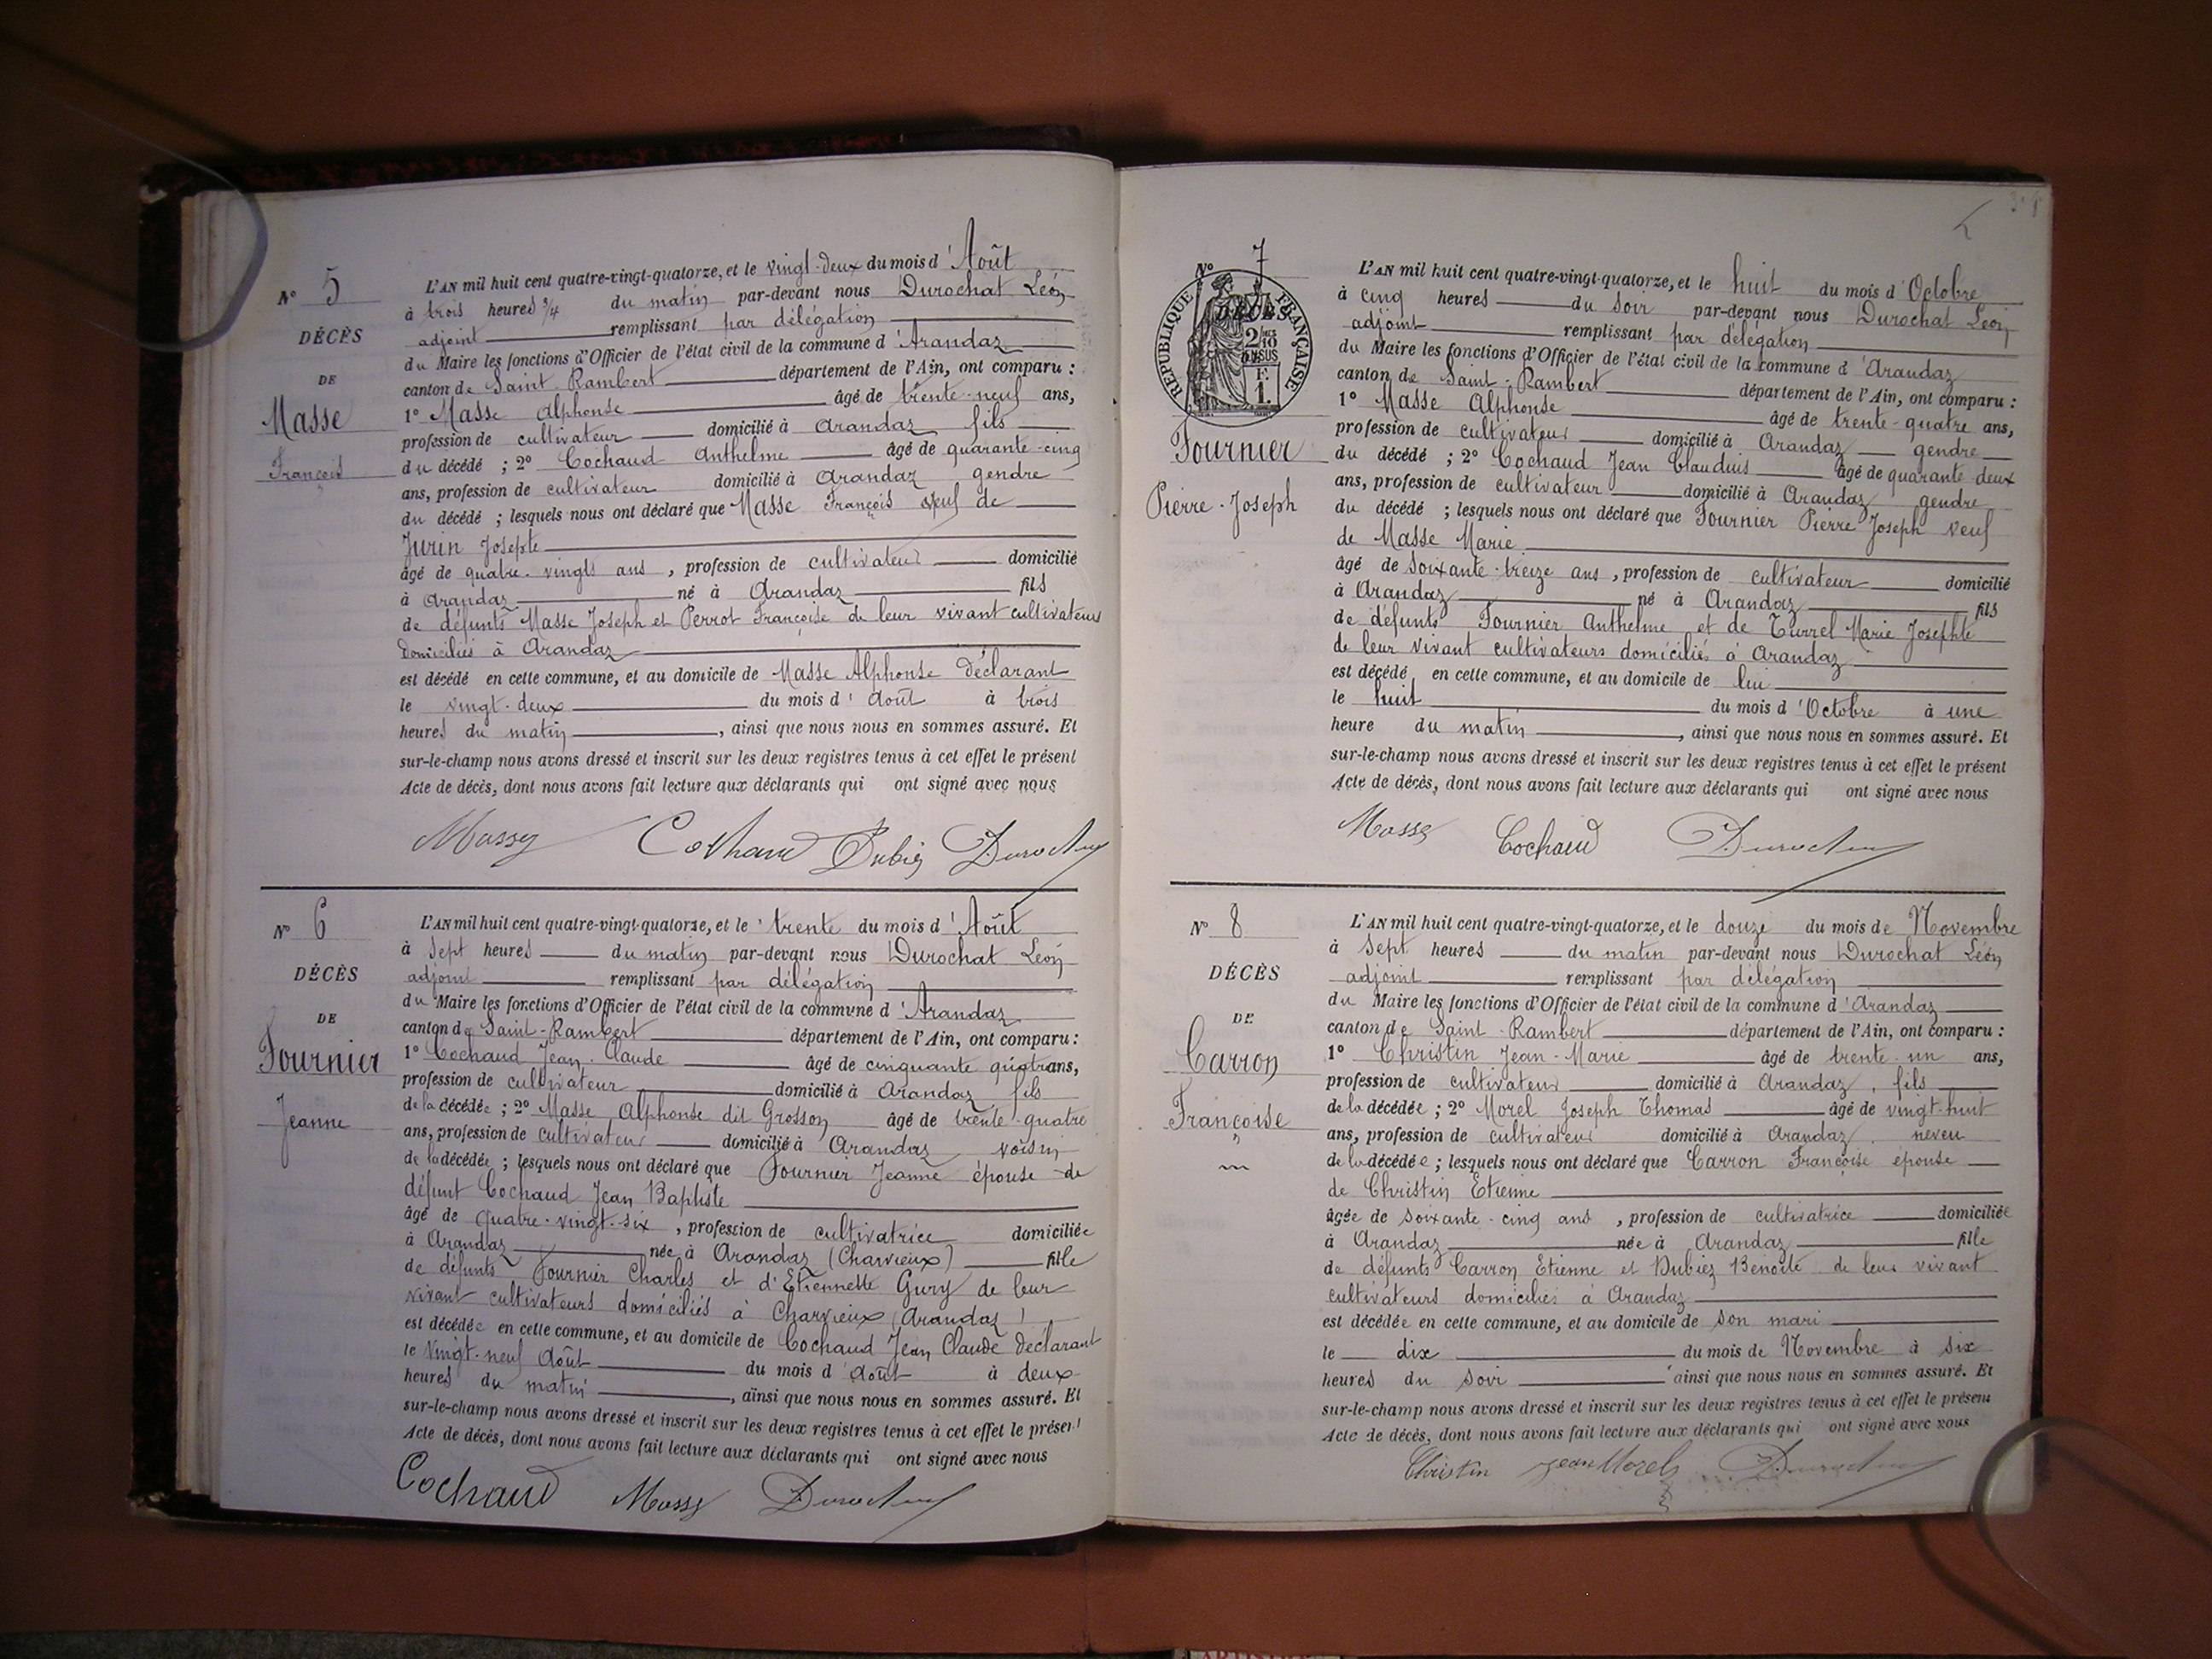 N° 5
DÉCÈS
DE
Masse
François
L'AN mil huit cent quatre-vingt-quatorze, et le vingt-deux du mois d'Août
à trois heures 3/4 du matin par-devant nous Durochat Léon
adjoint remplissant par délégation
du Maire les fonctions d'Officier de l'état civil de la commune d'Arandaz
canton de Saint-Rambert département de l'Ain, ont comparu :
1° Masse Alphonse âgé de trente-neuf ans,
profession de cultivateur domicilié à Arandaz fils
du décédé ; 2° Cochaud Anthelme âgé de quarante-cinq
ans, profession de cultivateur domicilié à Arandaz gendre
du décédé ; lesquels nous ont déclaré que Masse François veuf de
Jurin Josephte
âgé de quatre-vingts ans, profession de cultivateur domicilié
à Arandaz né à Arandaz fils
de défunts Masse Joseph et Perrot Françoise de leur vivant cultivateurs
domiciliés à Arandaz
est décédé en cette commune, et au domicile de Masse Alphonse déclarant
le vingt-deux du mois d'Août à trois
heures du matin, ainsi que nous nous en sommes assuré. Et
sur-le-champ nous avons dressé et inscrit sur les deux registres tenus à cet effet le présent
Acte de décès, dont nous avons fait lecture aux déclarants qui ont signé avec nous
Masse Cochaud Dubiez Durochat
N° 6
DÉCÈS
DE
Fournier
Jeanne
L'AN mil huit cent quatre-vingt-quatorze, et le trente du mois d'Août
à sept heures du matin par-devant nous Durochat Léon
adjoint remplissant par délégation
du Maire les fonctions d'Officier de l'état civil de la commune d'Arandaz
canton de Saint-Rambert département de l'Ain, ont comparu :
1° Cochaud Jean-Claude âgé de cinquante quatre ans,
profession de cultivateur domicilié à Arandaz fils
de la décédée ; 2° Masse Alphonse dit Grosson âgé de trente-quatre
ans, profession de cultivateur domicilié à Arandaz voisin
de la décédée ; lesquels nous ont déclaré que Fournier Jeanne épouse de
défunt Cochaud Jean Baptiste
âgé de quatre-vingt-six, profession de cultivatrice domiciliée
à Arandaz née à Arandaz (Charvieux) fille
de défunts Fournier Charles et d'Etiennette Gury de leur
vivant cultivateurs domiciliés à Charvieux (Arandaz)
est décédée en cette commune, et au domicile de Cochaud Jean Claude déclarant
le vingt-neuf Août du mois d'Août à deux
heures du matin, ainsi que nous nous en sommes assuré. Et
sur-le-champ nous avons dressé et inscrit sur les deux registres tenus à cet effet le présent
Acte de décès, dont nous avons fait lecture aux déclarants qui ont signé avec nous
Cochaud Masse Durochat
N° 7
DÉCÈS
RÉPUBLIQUE FRANÇAISE
2/10 EN SUS
F. 1.
Fournier
Pierre-Joseph
L'AN mil huit cent quatre-vingt-quatorze, et le huit du mois d'Octobre
à cinq heures du soir par-devant nous Durochat Léon
adjoint remplissant par délégation
du Maire les fonctions d'Officier de l'état civil de la commune d'Arandaz
canton de Saint-Rambert département de l'Ain, ont comparu :
1° Masse Alphonse âgé de trente-quatre ans,
profession de cultivateur domicilié à Arandaz gendre
du décédé ; 2° Cochaud Jean Claudius âgé de quarante deux
ans, profession de cultivateur domicilié à Arandaz gendre
du décédé ; lesquels nous ont déclaré que Fournier Pierre Joseph veuf
de Masse Marie
âgé de soixante-treize ans, profession de cultivateur domicilié
à Arandaz né à Arandaz fils
de défunts Fournier Anthelme et de Turrel Marie Josephte
de leur vivant cultivateurs domiciliés à Arandaz
est décédé en cette commune, et au domicile de lui
le huit du mois d'Octobre à une
heure du matin, ainsi que nous nous en sommes assuré. Et
sur-le-champ nous avons dressé et inscrit sur les deux registres tenus à cet effet le présent
Acte de décès, dont nous avons fait lecture aux déclarants qui ont signé avec nous
Masse Cochaud Durochat
N° 8
DÉCÈS
DE
Carron
Françoise
L'AN mil huit cent quatre-vingt-quatorze, et le douze du mois de Novembre
à sept heures du matin par-devant nous Durochat Léon
adjoint remplissant par délégation
du Maire les fonctions d'Officier de l'état civil de la commune d'Arandaz
canton de Saint-Rambert département de l'Ain, ont comparu :
1° Christin Jean-Marie âgé de trente-un ans,
profession de cultivateur domicilié à Arandaz, fils
de la décédée ; 2° Morel Joseph Thomas âgé de vingt-huit
ans, profession de cultivateur domicilié à Arandaz, neveu
de la décédée ; lesquels nous ont déclaré que Carron Françoise épouse
de Christin Etienne
âgée de soixante-cinq ans, profession de cultivatrice domiciliée
à Arandaz née à Arandaz fille
de défunts Carron Etienne et Dubiez Benoîte de leur vivant
cultivateurs domiciliés à Arandaz
est décédée en cette commune, et au domicile de son mari
le dix du mois de Novembre à six
heures du soir ainsi que nous nous en sommes assuré. Et
sur-le-champ nous avons dressé et inscrit sur les deux registres tenus à cet effet le présent
Acte de décès, dont nous avons fait lecture aux déclarants qui ont signé avec nous
Christin Jean Morel Durochat